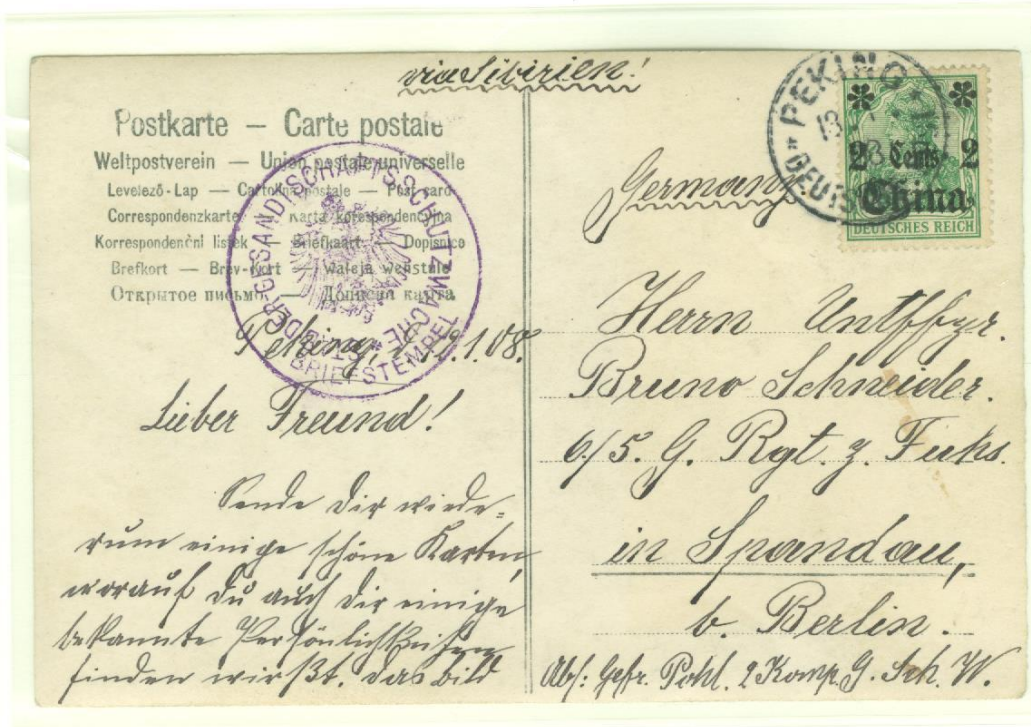 via Sibirien!
Postkarte — Carte postale
Weltpostverein — Union postale universelle
Levelező-Lap — Cartolina postale — Post card
Correspondenzkarte — Karta korespondencyjna
Korespondenční lístek — Briefkaart — Dopisnice
Brefkort — Brev-Kort — Waleja wenstule
Открытое письмо — Дописна карта
GESANDTSCHAFTSSCHUTZWACHE
BRIEFSTEMPEL
Peking, 1.08.
Lieber Freund!
Sende Dir wiede-
rum einige schöne Karten,
worauf Du auch Dir einige
bekannte Persönlichkeiten
finden wirst. Das Bild
PEKING
DEUTSCHE
2 Cents 2
China
DEUTSCHES REICH
Germany
Herrn Untffzr.
Bruno Schneider.
6/5. G. Rgt. z. Fuhs.
in Spandau,
b. Berlin.
Abs: Gefr. Pohl. 2 Komp. G. Sch. W.